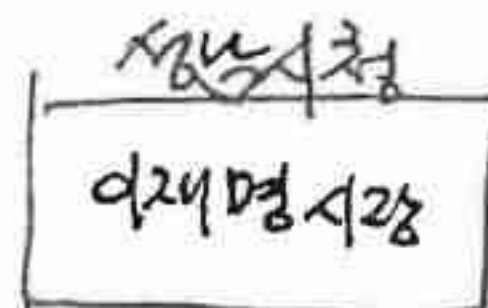 성남시청
이재명 시장